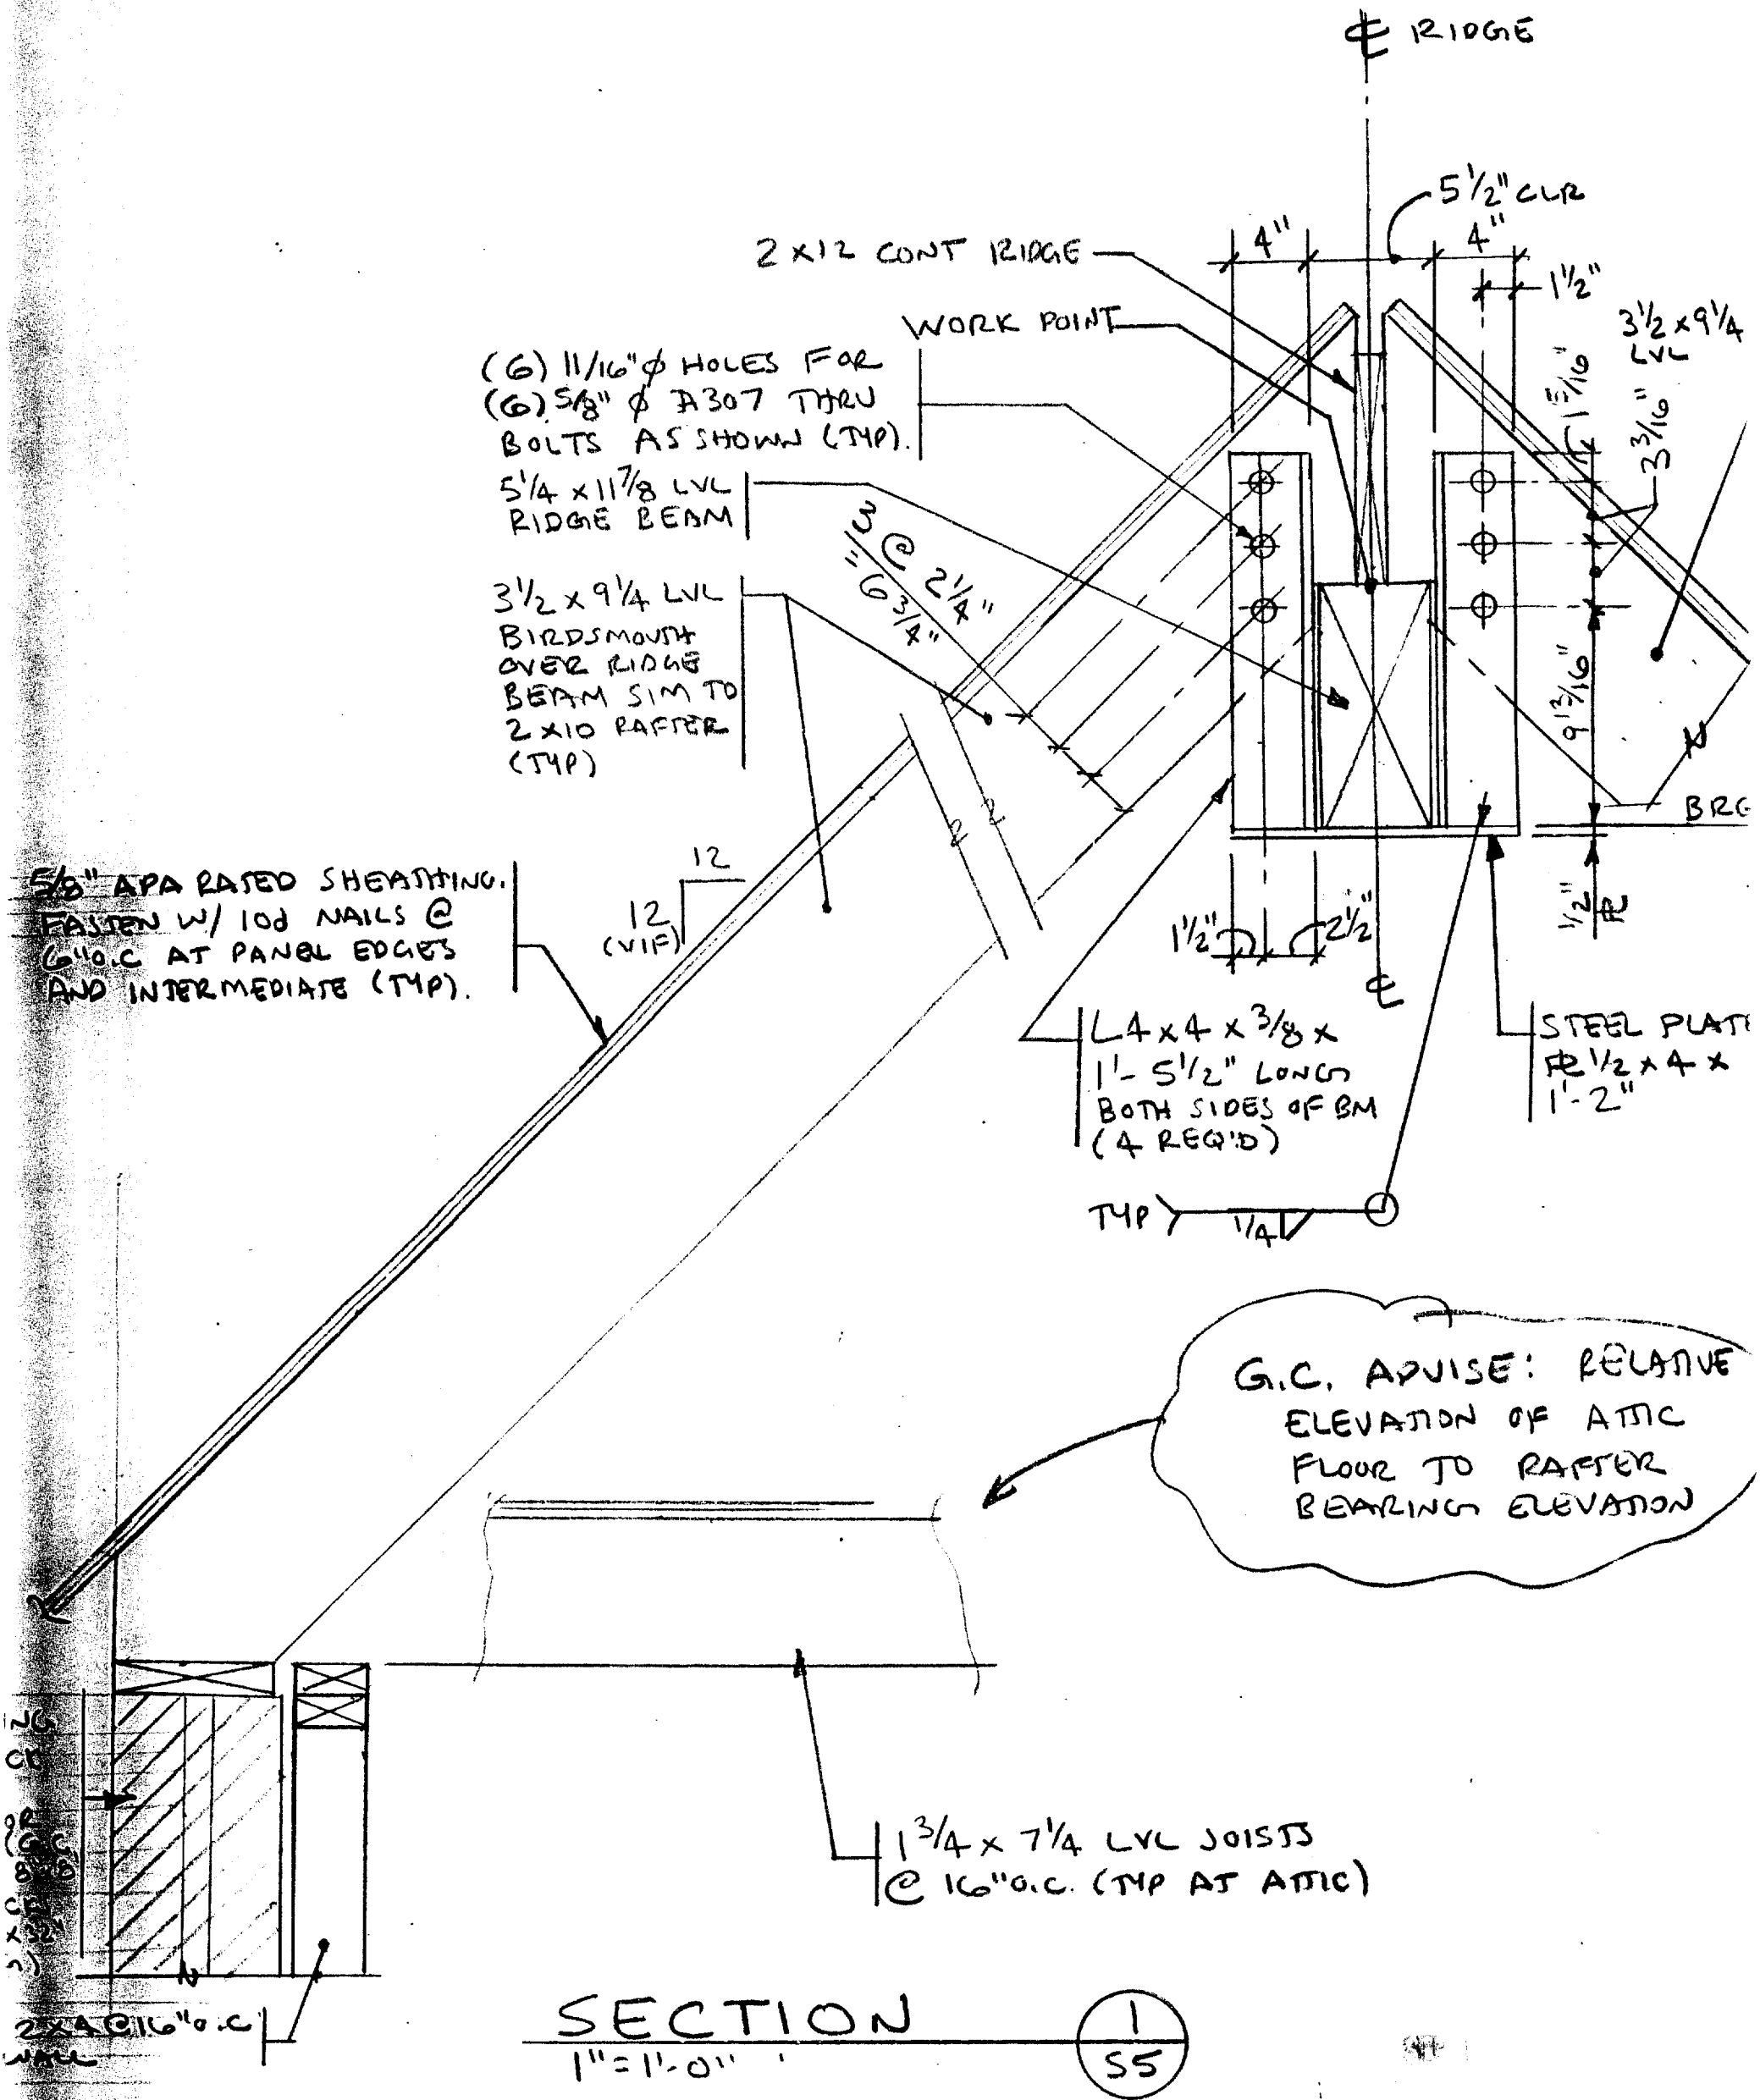 ℄ RIDGE
5 1/2" CLR
4"
4"
1 1/2"
2 x 12 CONT RIDGE
WORK POINT
3 1/2 x 9 1/4
LVL
1 5/16"
3 3/16"
(6) 11/16" ϕ HOLES FOR
(6) 5/8" ϕ A307 THRU
BOLTS AS SHOWN (TYP).
5 1/4 x 11 7/8 LVL
RIDGE BEAM
3 @ 2 1/4"
= 6 3/4"
3 1/2 x 9 1/4 LVL
BIRDSMOUTH
OVER RIDGE
BEAM SIM TO
2 x 10 RAFTER
(TYP)
9 13/16"
BRG
1/2" PL
12
12
(VIF)
5/8" APA RATED SHEATHING.
FASTEN W/ 10d NAILS @
6" O.C AT PANEL EDGES
AND INTERMEDIATE (TYP).
1 1/2"
2 1/2"
℄
L 4 x 4 x 3/8 x
1'- 5 1/2" LONG
BOTH SIDES OF BM
(4 REQ'D)
STEEL PLATE
PL 1/2 x 4 x
1'-2"
TYP
1/4
G.C. ADVISE: RELATIVE
ELEVATION OF ATTIC
FLOOR TO RAFTER
BEARING ELEVATION
1 3/4 x 7 1/4 LVL JOISTS
@ 16" O.C. (TYP AT ATTIC)
2x4 @ 16" O.C
WALL
SECTION
1" = 1'-0"
1
S5